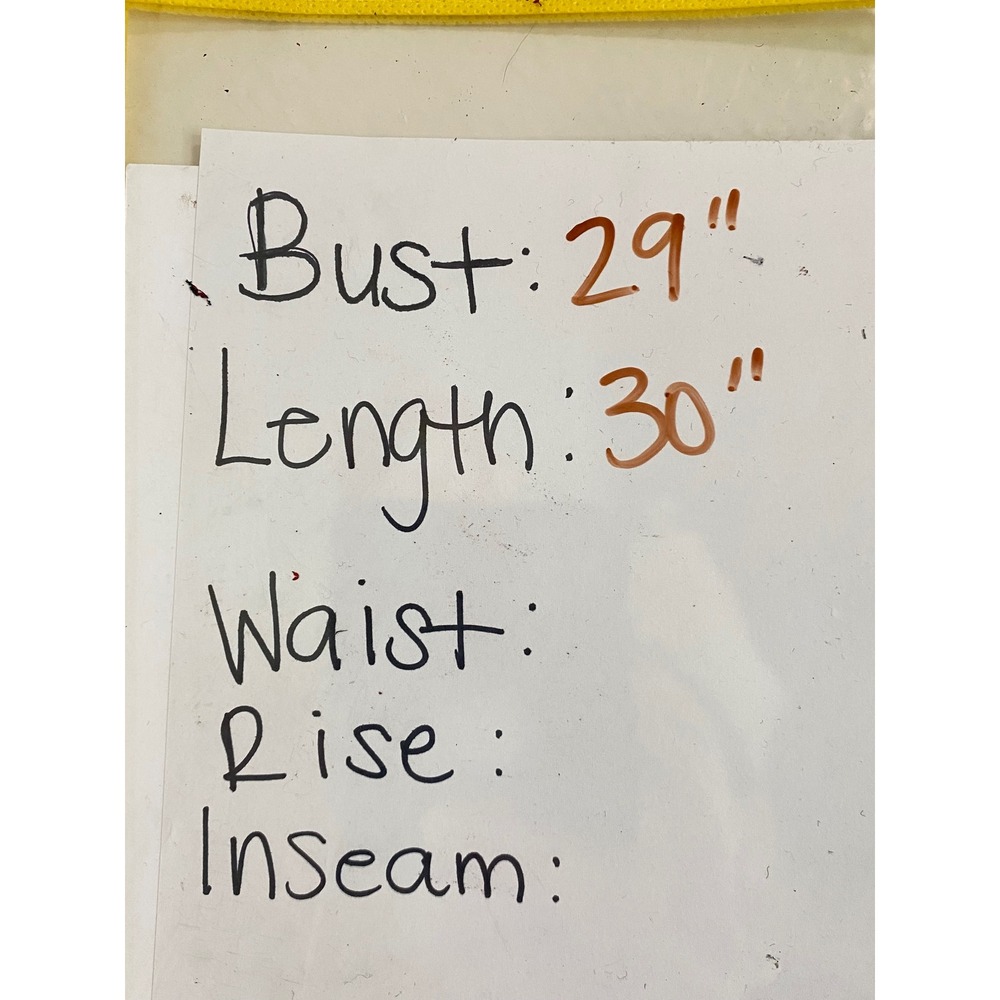 Bust: 29"
Length: 30"
Waist:
Rise:
Inseam: